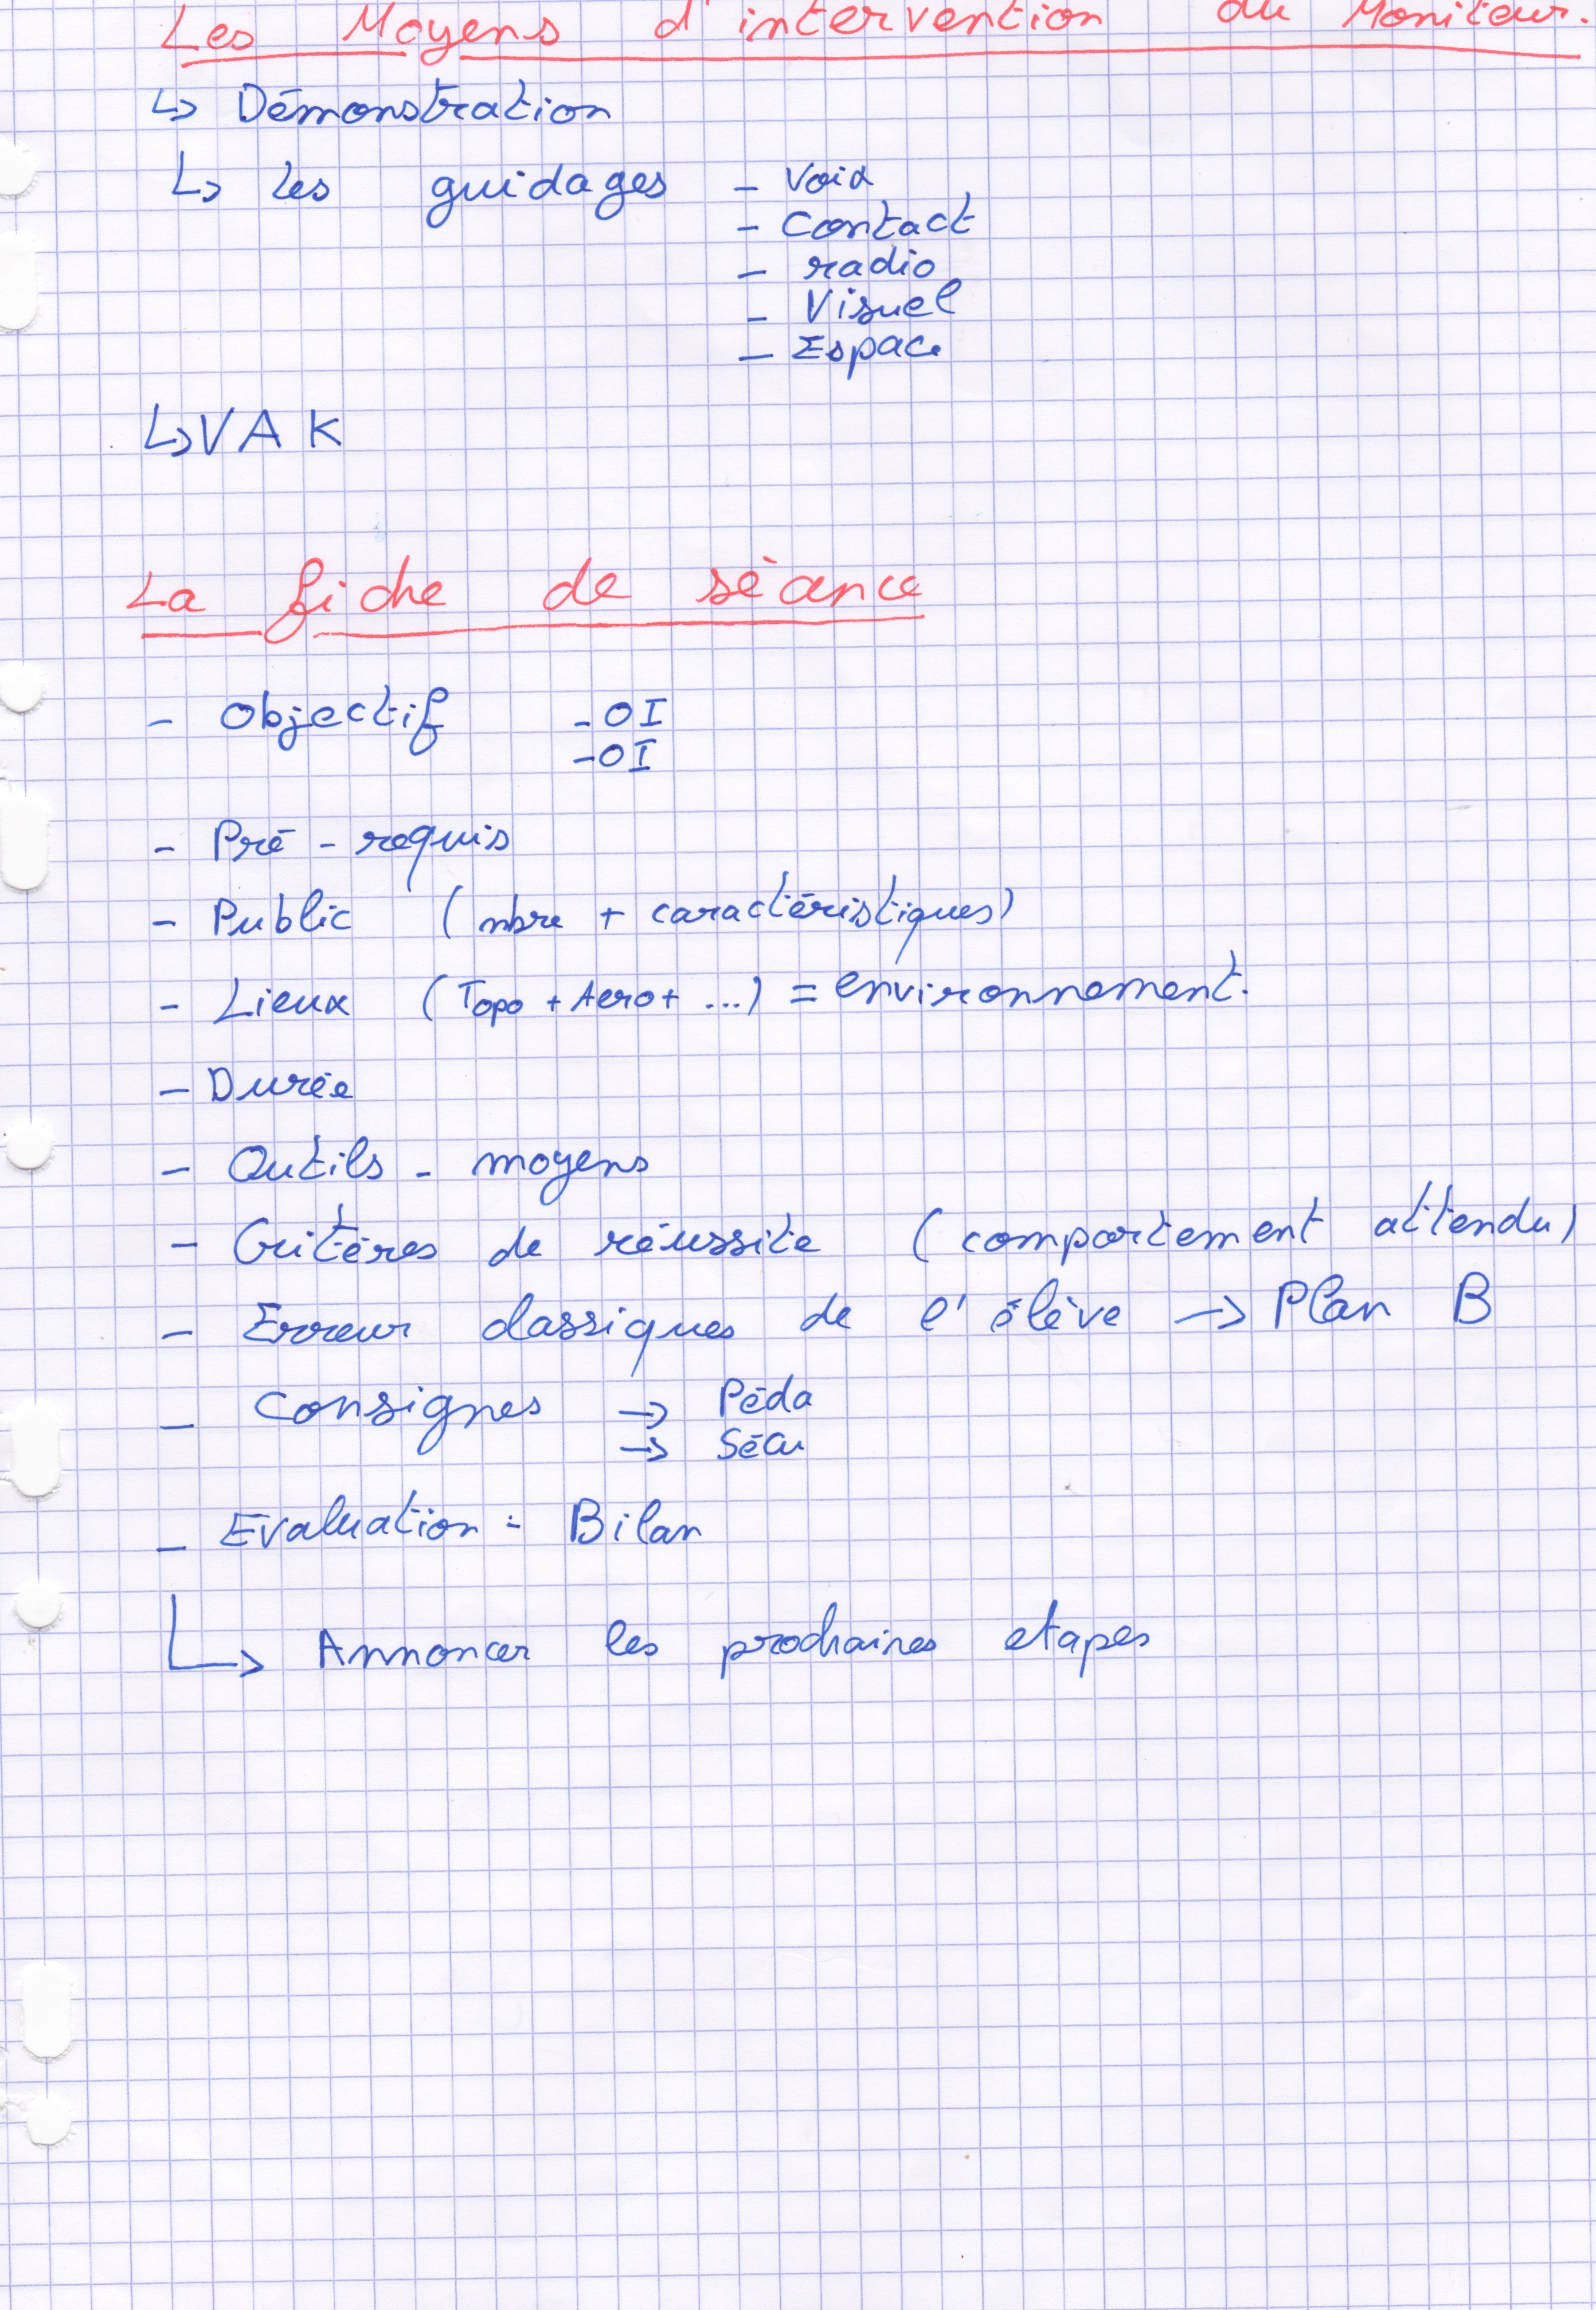 Les Moyens d'intervention du Moniteur.
↳ Démonstration
↳ les guidages - Voix
- Contact
- radio
- Visuel
- Espace
↳ V A K
La fiche de séance
- Objectif - OI
- OI
- Pré-requis
- Public (nbre + caractéristiques)
- Lieux (Topo + Aero + ...) = environnement.
- Durée
- Outils - moyens
- Critères de réussite (comportement attendu)
- Erreur classiques de l'élève → Plan B
- Consignes → Péda
→ Sécu
- Evaluation = Bilan
↳ Annoncer les prochaines etapes